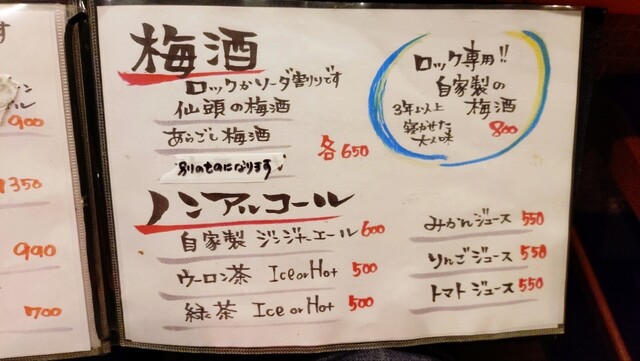 梅酒
ロックかソーダ割りです
仙頭の梅酒
あらごし梅酒
各650
別のものになります
ロック専用!!
自家製の
梅酒
3年以上
寝かせた
大人味
800
ノンアルコール
自家製 ジンジャーエール 600
ウーロン茶 Ice or Hot 500
緑茶 Ice or Hot 500
みかんジュース 550
りんごジュース 550
トマトジュース 550
900
1350
990
700